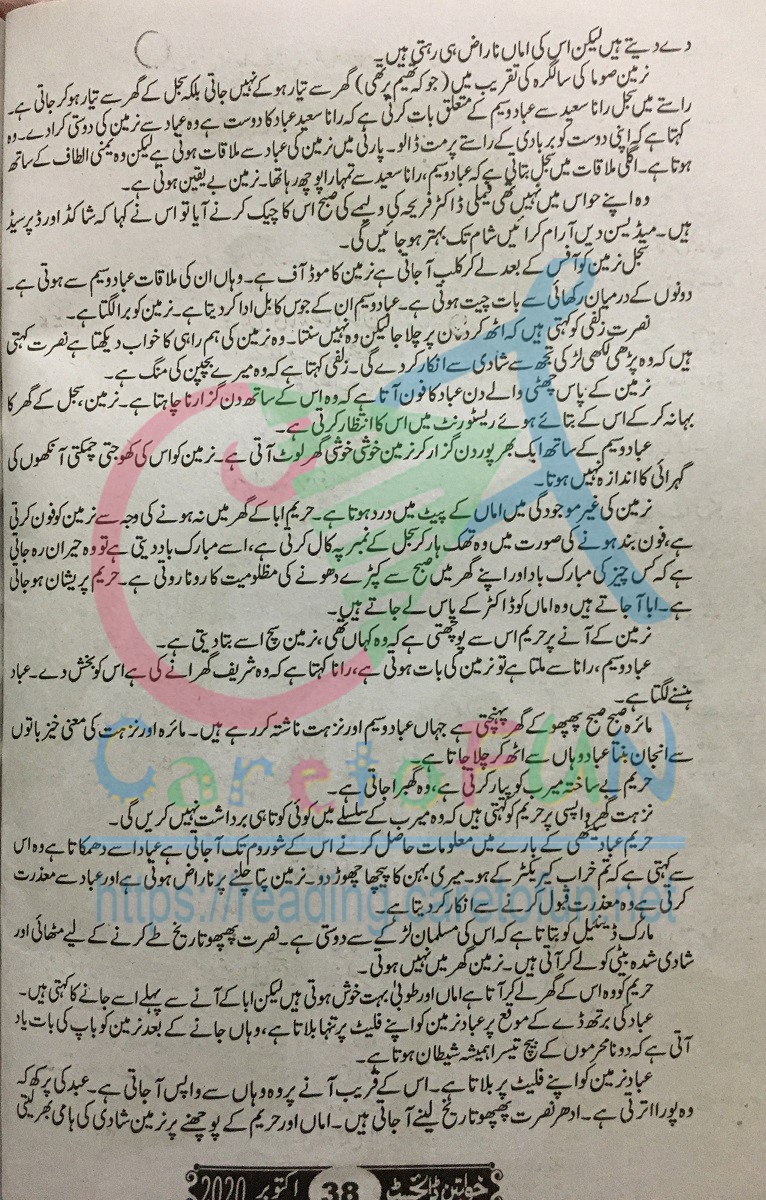 دے دیتے ہیں لیکن اس کی اماں ناراض ہی رہتی ہیں۔
نرمین صوما کی سالگرہ کی تقریب میں (جو کہ تھیم پر تھی) گھر سے تیار ہو کے نہیں جاتی بلکہ سجل کے گھر سے تیار ہو کر جاتی ہے۔
راستے میں سجل رانا سعید سے عباد وسیم کے متعلق بات کرتی ہے کہ رانا سعید عباد کا دوست ہے وہ عباد سے نرمین کی دوستی کرادے۔ وہ
کہتا ہے کہ اپنی دوست کو بربادی کے راستے پر مت ڈالو۔ پارٹی میں نرمین کی عباد سے ملاقات ہوتی ہے لیکن وہ یمنی الطاف کے ساتھ
ہوتا ہے۔ اگلی ملاقات میں سجل بتاتی ہے کہ عباد وسیم، رانا سعید سے تمہارا پوچھ رہا تھا۔ نرمین بے یقین ہوتی ہے۔
وہ اپنے حواس میں نہیں تھی فیملی ڈاکٹر فریحہ کی ولیمے کی صبح اس کا چیک کرنے آیا تو اس نے کہا کہ شاکڈ اور ڈپرسیڈ
ہیں۔ میڈیسن دیں آرام کرائیں شام تک بہتر ہو جائیں گی۔
سجل نرمین کو آفس کے بعد لے کر کلب آ جاتی ہے نرمین کا موڈ آف ہے۔ وہاں ان کی ملاقات عباد وسیم سے ہوتی ہے۔
دونوں کے درمیان رکھائی سے بات چیت ہوتی ہے۔ عباد وسیم ان کے جوس کا بل ادا کر دیتا ہے۔ نرمین کو برا لگتا ہے۔
نصرت زلفی کو کہتی ہیں کہ اٹھ کر دکان پر چلا جا لیکن وہ نہیں سنتا۔ وہ نرمین کی ہم راہی کا خواب دیکھتا ہے نصرت کہتی
ہیں کہ وہ پڑھی لکھی لڑکی تجھ سے شادی سے انکار کر دے گی۔ زلفی کہتا ہے کہ وہ میرے بچپن کی منگ ہے۔
نرمین کے پاس چھٹی والے دن عباد کا فون آتا ہے کہ وہ اس کے ساتھ دن گزارنا چاہتا ہے۔ نرمین، سجل کے گھر کا
بہانہ کر کے اس کے بتائے ہوئے ریسٹورنٹ میں اس کا انتظار کرتی ہے۔
عباد وسیم کے ساتھ ایک بھر پور دن گزار کر نرمین خوشی خوشی گھر لوٹ آتی ہے۔ نرمین کو اس کی کھوجتی چمکتی آنکھوں کی
گہرائی کا اندازہ نہیں ہوتا۔
نرمین کی غیر موجودگی میں اماں کے پیٹ میں درد ہوتا ہے۔ حریم ابا کے گھر میں نہ ہونے کی وجہ سے نرمین کو فون کرتی
ہے، فون بند ہونے کی صورت میں وہ تھک ہار کر سجل کے نمبر پہ کال کرتی ہے، اسے مبارک باد دیتی ہے تو وہ حیران رہ جاتی
ہے کہ کس چیز کی مبارک باد اور اپنے گھر میں صبح سے کپڑے دھونے کی مظلومیت کا رونا روتی ہے۔ حریم پریشان ہو جاتی
ہے۔ ابا آ جاتے ہیں وہ اماں کو ڈاکٹر کے پاس لے جاتے ہیں۔
نرمین کے آنے پر حریم اس سے پوچھتی ہے کہ وہ کہاں تھی، نرمین سچ اسے بتا دیتی ہے۔
عباد وسیم، رانا سے ملتا ہے تو نرمین کی بات ہوتی ہے، رانا کہتا ہے کہ وہ شریف گھرانے کی ہے اس کو بخش دے۔ عباد
ہنسنے لگتا ہے۔
مائرہ صبح صبح پھپھو کے گھر پہنچتی ہے جہاں عباد وسیم اور نزہت ناشتہ کر رہے ہیں۔ مائرہ اور نزہت کی معنی خیز باتوں
سے انجان بنتا عباد وہاں سے اٹھ کر چلا جاتا ہے۔
حریم بے ساختہ میرب کو پیار کرتی ہے، وہ گھبرا جاتی ہے۔
نزہت گھر واپسی پر حریم کو کہتی ہیں کہ وہ میرب کے سلسلے میں کوئی کوتاہی برداشت نہیں کریں گی۔
حریم عباد سیٹھی کے بارے میں معلومات حاصل کرنے اس کے شوروم تک آ جاتی ہے عباد اسے دھمکاتا ہے وہ اس
سے کہتی ہے کہ تم خراب کیریکٹر کے ہو۔ میری بہن کا پیچھا چھوڑ دو۔ نرمین پتا چلنے پر ناراض ہوتی ہے اور عباد سے معذرت
کرتی ہے وہ معذرت قبول کرنے سے انکار کر دیتا ہے۔
مارک ڈینئیل کو بتاتا ہے کہ اس کی مسلمان لڑکے سے دوستی ہے۔ نصرت پھپھو تاریخ طے کرنے کے لیے مٹھائی اور
شادی شدہ بیٹی کو لے کر آتی ہیں۔ نرمین گھر میں نہیں ہوتی۔
حریم کو وہ اس کے گھر لے کر آتا ہے اماں اور طوبیٰ بہت خوش ہوتی ہیں لیکن ابا کے آنے سے پہلے اسے جانے کا کہتی ہیں۔
عباد کی برتھ ڈے کے موقع پر عباد نرمین کو اپنے فلیٹ پر تنہا بلاتا ہے، وہاں جانے کے بعد نرمین کو باپ کی بات یاد
آتی ہے کہ دو نامحرموں کے بیچ تیسرا ہمیشہ شیطان ہوتا ہے۔
عباد نرمین کو اپنے فلیٹ پر بلاتا ہے۔ اس کے قریب آنے پر وہ وہاں سے واپس آ جاتی ہے۔ عبد کی پرکھ کہ
وہ پورا اترتی ہے۔ ادھر نصرت پھپھو تاریخ لینے آ جاتی ہیں۔ اماں اور حریم کے پوچھنے پر نرمین شادی کی ہامی بھر لیتی
خواتین ڈائجسٹ 38 اکتوبر 2020
CaretoFUN
https://reading.caretofun.net